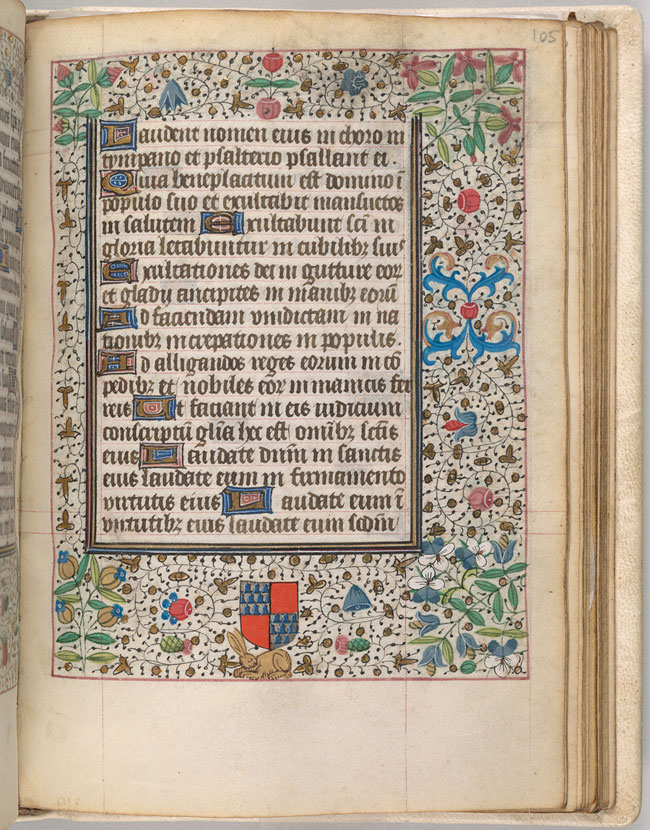 105
Laudent nomen eius in choro in
tympano et psalterio psallant ei.
Quia beneplacitum est domino ī
populo suo et exultabit mansuetos
in salutem Exultabunt scī in
gloria letabuntur in cubilibꝫ suis
Exultationes dei in gutture eoꝝ
et gladii ancipites in manibꝫ eorū
Ad faciendam vindictam in na
tionibꝫ increpationes in populis.
Ad alligandos reges eorum in cō
pedibꝫ et nobiles eoꝝ in manicis fer
reis Ut faciant in eis iudicium
conscriptū glīa hec est omībꝫ scīs
eius Laudate dnm in sanctis
eius laudate eum in firmamento
virtutis eius Laudate eum ī
virtutibꝫ eius laudate eum scdm